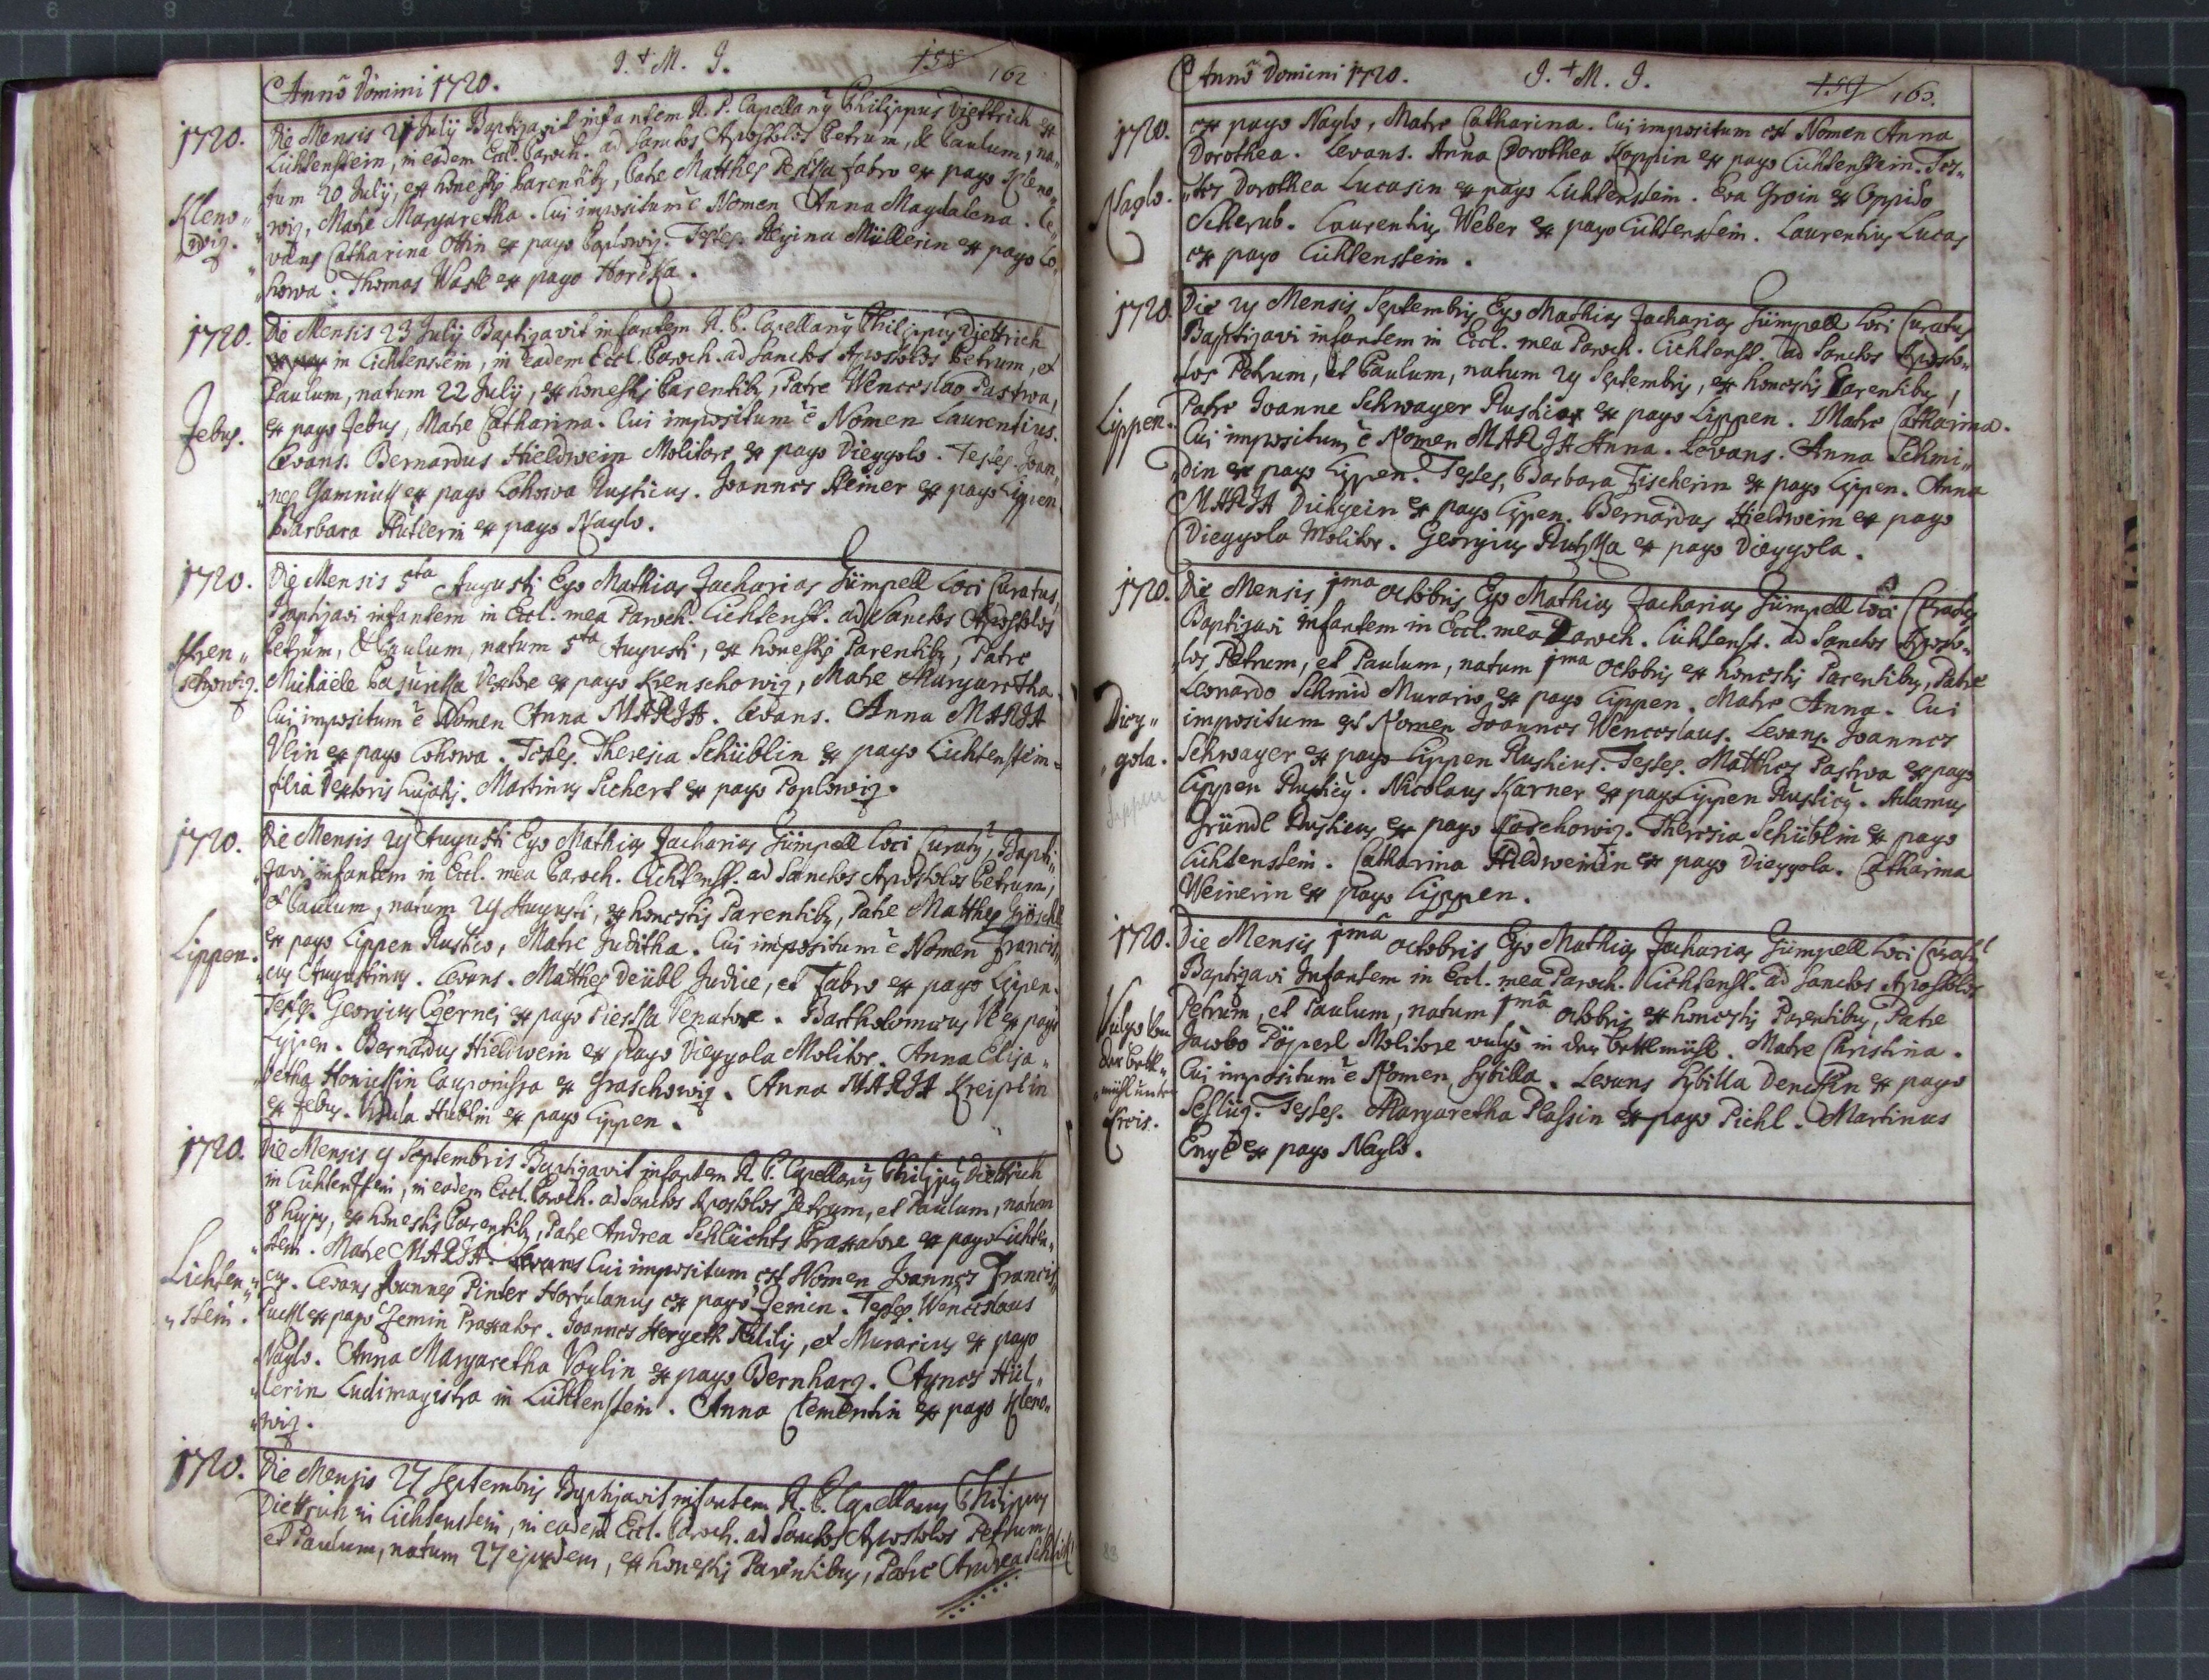 Anno Domini 1720. J. + M. J. 158 162
1720. Die Mensis 21 July Baptizavit infantem R. P. Capellanus Philippus Diettrich ex
Lichtenstein, in eadem Eccl. Paroch. ad Sanctos Apostolos Petrum, & Paulum, na„
tum 20 July, ex honestis Parentib, Patre Matthes fabro ex pago Kleno„
Kleno„ wiz, Matre Margaretha. Cui impositum e Nomen Anna Magdalena. Le„
wiz. „vans Catharina Ottin ex pago Poplowiz. Testes. Regina Müllerin ex pago Lo„
„howa. Thomas Wastl ex pago Horzka.
1720. Die Mensis 23 July Baptizavit infantem R. P. Capellanus Philippus Diettrich
in Lichtenstein, in eadem Eccl. Paroch. ad Sanctos Apostolos Petrum, et
Paulum, natum 22 July, ex honestis Parentib, Patre Wenceslao Pastwa,
Jebus. ex pago Jebus, Matre Catharina. Cui impositum e Nomen Laurentius.
Levans. Bernardus Hieldwein Molitore ex pago Dieygolo. Testes. Joan„
„nes ex pago Lohowa Rusticus. Joannes Steiner ex pago Lippen
Barbara Hütlerin ex pago Naglo.
1720. Die Mensis 5ta Augusti Ego Mathias Zacharias Gümpell Loci Curatus,
Baptizavi infantem in Eccl. mea Paroch. Lichtenst. ad Sanctos Apostolos
Kren„ Petrum, & Paulum, natum 5ta Augusti, ex honestis Parentib, Patre
schowiz. Michäele Textore ex pago Krenschowiz, Matre Margaretha.
Cui impositum e Nomen Anna MARIA. Levans. Anna MARIA
Vlin ex pago Lohowa. Testes. Theresia Schüblin ex pago Lichtenstein
filia Textoris hujatis. Martinus Sichert ex pago Poplowiz.
1720. Die Mensis 29 Augusti Ego Mathias Zacharias Gümpell Loci Curats, Bapti„
„zavi infantem in Eccl. mea Paroch. Lichtenst. ad Sanctos Apostolos Petrum,
et Paulum, natum 29 Augusti, ex honestis Parentib, Patre Matthes Gröschl
Lippen. ex pago Lippen Rustico, Matre Juditha. Cui impositum e Nomen Francis„
„cus Augustinus. Levans. Matthes Deübl Judice, et Fabro ex pago Lipen.
Testes. Georgius Czernei ex pago Pieska Venatore. Bartholomæus Vl ex pago
Lippen. Bernardus Hieldwein ex pago Dieygola Molitor. Anna Elisa„
„betha Honickin Cauponissa ex Graschowiz. Anna MARIA Kreiplin
ex Jebus. Vrsula Hüblin ex pago Lippen.
1720. Die Mensis 9 Septembris Baptizavit infantem R. P. Capellanus Philippus Diettrich
in Lichtenstein, in eadem Eccl. Paroch. ad Sanctos Apostolos Petrum, et Paulum, natum
8 hujus, ex honestis Parentib, Patre Andrea Schlüchts Braxatore ex pago Lichten„
Lichten„ „stein. Matre MARIA. Levans Cui impositum est Nomen Joannes Francis„
„stein. cus. Levans Joannes Pinter Hortulanus ex pago Zemin. Testes. Wenceslaus
ex pago Zemin Braxator. Joannes Hergeth Militis, et Murarius ex pago
Naglo. Anna Margaretha Voglin ex pago Bernharz. Agnes Hül„
„lerin Ludimagistra in Lichtenstein. Anna Clementin ex pago Kleno„
„wiz.
1720. Die Mensis 27 Septembris Baptizavit infantem R. P. Capellanus Philippus
Diettrich in Lichtenstein, in eadem Eccl. Paroch. ad Sanctos Apostolos Petrum,
et Paulum, natum 27 ejusdem, ex honestis Parentibus, Patre Andrea
Anno Domini 1720. J. + M. J. 159 163.
1720. ex pago Naglo, Matre Catharina. Cui impositum est Nomen Anna
Dorothea. Levans. Anna Dorothea Koppin ex pago Lichtenstein. Tes„
Naglo. „tes Dorothea Lucasin ex pago Lichtenstein. Eva Groin ex Oppido
Scherub. Laurentius Weber ex pago Lichtenstein. Laurentius Lucas
ex pago Lichtenstein.
1720. Die 29 Mensis Septembris Ego Mathias Zacharias Gümpell Loci Curatus
Baptizavi infantem in Eccl. mea Paroch. Lichtenst. ad Sanctos Aposto„
„los Petrum, et Paulum, natum 29 Septembris, ex honestis Parentibus,
Lippen. Patre Joanne Schwayer Rustico ex pago Lippen. Matre Catharina.
Cui impositum e Nomen MARIA Anna. Levans. Anna Schmi„
„din ex pago Lippen. Testes, Barbara Fischerin ex pago Lippen. Anna
MARIA ex pago Lippen. Bernardus Hieldwein ex pago
Dieygola Molitor. Georgius ex pago Dieygola.
1720. Die Mensis 1ma octobris Ego Mathias Zacharias Gümpell Loci Curatus
Baptizavi infantem in Eccl. mea Paroch. Lichtenst. ad Sanctos Aposto„
„los Petrum, et Paulum, natum 1ma octobris ex honestis Parentibus, Patre
Leonardo Schmid Murario ex pago Lippen. Matre Anna. Cui
Diey„ impositum est Nomen Joannes Wenceslaus. Levans. Joannes
„gola. Schwayer ex pago Lippen Rusticus. Testes. Matthes Pastwa ex pago
Lippen Lippen Rusticus. Nicolaus Karner ex pago Lippen Rusticus. Adamus
Gründl Rusticus ex pago Radschowiz. Theresia Schüblin ex pago
Lichtenstein. Catharina Hieldweinin ex pago Dieygola. Catharina
Weinerin ex pago Lippen.
1720. Die Mensis 1ma octobris Ego Mathias Zacharias Gümpell Loci Curats
Baptizavi Infantem in Eccl. mea Paroch. Lichtenst. ad Sanctos Apostolos
Vulgo Von Petrum, et Paulum, natum 1ma octobris ex honestis Parentibus, Patre
der Bettl„ Jacobo Pöperl Molitore vulgo in der Bettlmühl. Matre Christina.
„mühl unter Cui impositum e Nomen Sybilla. Levans Sybilla ex pago
Testes. Margaretha Plassin ex pago Pichl. Martinus
ex pago Naglo.
83